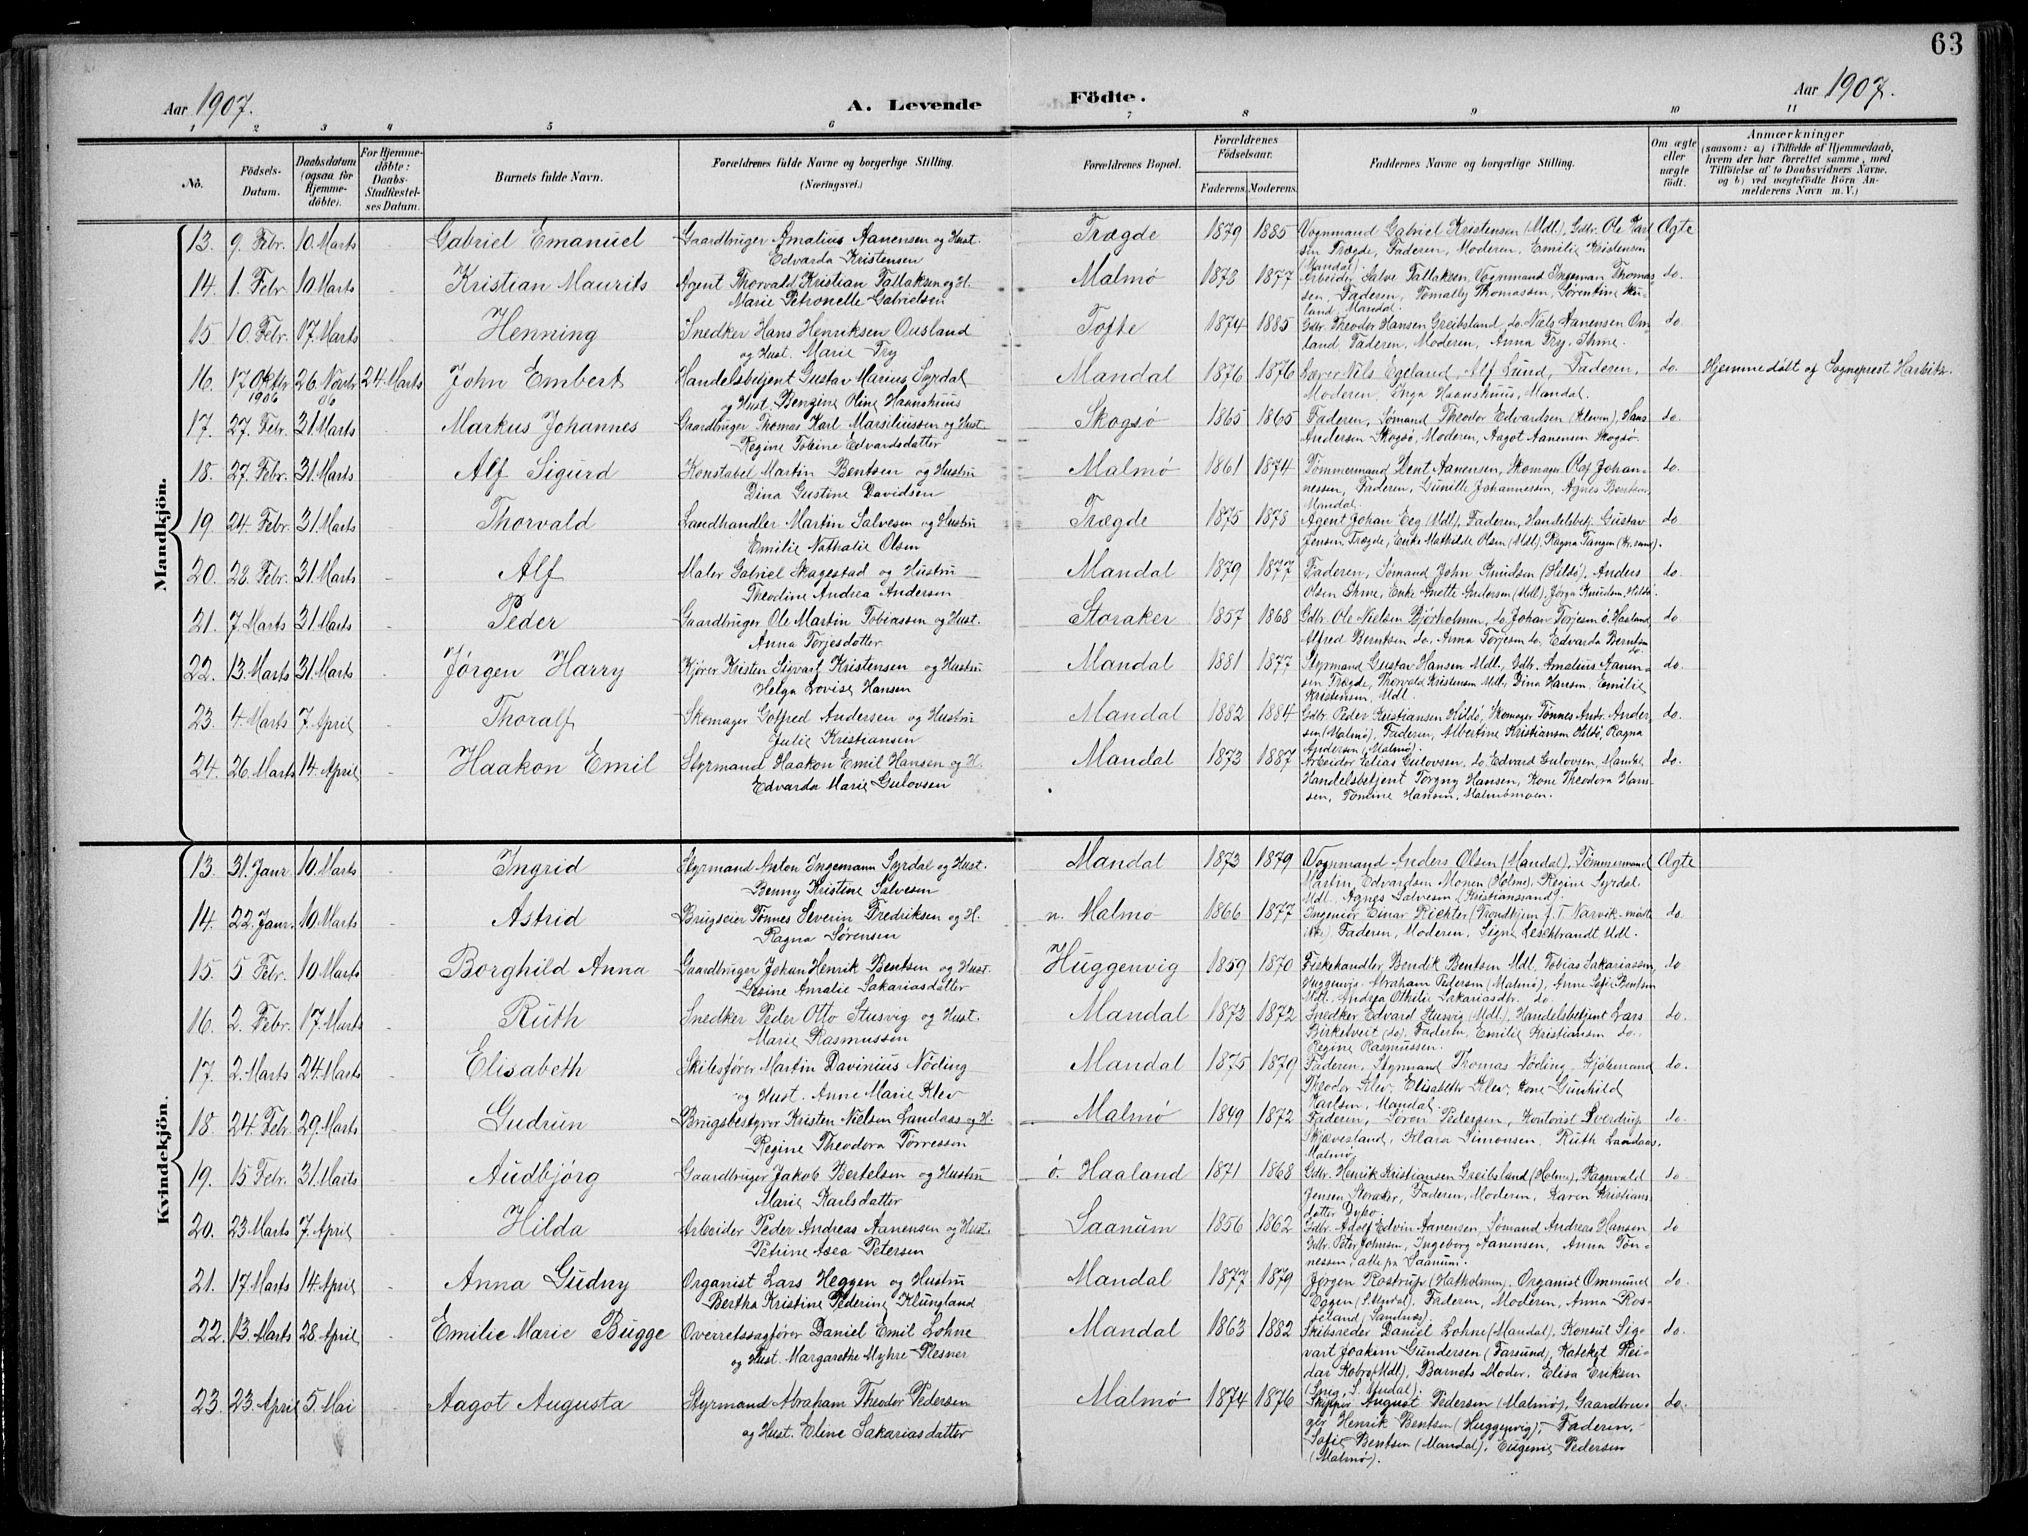 63
Aar 1907.
A. Levende Födte.
Aar 1907.
1 2 3 4 5 6 7 8 9 10 11
No. Födsels-Datum. Daabsdatum (ogsaa for Hjemmedöbte). For Hjemmedöbte: Daabs-Stadfæstelses Datum. Barnets fulde Navn. Forældrenes fulde Navne og borgerlige Stilling. (Næringsvei.) Forældrenes Bopæl. Forældrenes Födselsaar. Faderens. Moderens. Faddernes Navne og borgerlige Stilling. Om ægte eller uægte födt. Anmærkninger (saasom: a) i Tilfælde af Hjemmedaab, hvem der har forrettet samme, med Tilföielse af to Daabsvidners Navne, og b) ved uægtefödte Börn Anmelderens Navn m. V.)
Mandkjön.
13. 9. Febr. 10. Marts Gabriel Emanuel Gaardbruger Amalius Aanensen og Hust. Trægde 1879 1885 Vognmand Gabriel Kristensen (Mdl), Gdbr. Ole Karl Ægte
Edvarda Kristensen sin Trægde, Faderen, Moderen, Emilie Kristensen
(Mandal).
14. 1. Febr 10. Marts Kristian Maurits Agent Thorvald Kristian Tallaksen og H. Malmø 1873 1877 Arbeider Salve Tallaksen, Vognmand Ingeman Thomas do.
Marie Petronelle Gabrielsen sen, Faderen, Tomally Thomassen, Sørentine
land Mandal.
15 10. Febr. 17. Marts Henning Snedker Hans Henriksen Ousland Tofte 1874 1885 Gdbr. Theodor Hansen Greibsland, do. Niels Aanensen Om do.
og Hust. Marie Try land, Faderen, Moderen, Anna Try, Ihme.
16. 17 Oktbr 1906 26 Novbr 06 24. Marts John Embert Handelsbetjent Gustav Marius Syrdal Mandal 1876 1876 Lærer Nils Egeland, Alf Lund, Faderen, do. Hjemmedøbt af Sogneprest Harbitz.
og Hust. Bergine Oline Haanshuus Moderen, Inga Haanshuus, Mandal.
17. 27. Febr. 31 Marts Markus Johannes Gaardbruger Thomas Karl Marsiliussen og Hust. Skogsø 1865 1865 Faderen, Sømand Theodor Edvardsen (Kleven), Hans do.
Regine Tobine Edvardsdatter Andersen Skogsø, Moderen, Aagot Aanensen Skogsø.
18. 27. Febr. 31 Marts Alf Sigurd Konstabel Martin Bentsen og Hustru Malmø 1861 1874 Tømmermand Bent Aanensen, Skomager Olaf Johan- do.
Dina Gustine Davidsen nessen, Faderen, Gunille Johannessen, Agnes Bentsen,
Mandal.
19. 24 Febr. 31 Marts Thorvald Landhandler Martin Salvesen og Hustru Trægde 1875 1878 Agent Johan Eeg (Mdl), Faderen, Handelsbetj. Gustav do
Emilie Nathalie Olsen Jensen Trægde, Enke Mathilde Olsen (Mdl), Ragna Tangen (Kr.sand).
20. 28. Febr. 31 Marts Alf Maler Gabriel Skagestad og Hustru Mandal 1879 1877 Faderen, Sømand John Knudsen (Hildø), Anders do.
Theodine Andrea Andersen Olsen Ihme, Enke Anette Andersen (Mdl), Jørga Knudsen, Hildø.
21. 7. Marts 31 Marts Peder Gaardbruger Ole Martin Tobiassen og Hust. Storaker 1857 1868 Gdbr. Ole Nielsen Bjørholmen, do. Johan Torjesen ö. Haaland, do.
Anna Torjesdatter Alfred Berntsen do. Anna Torjesen do. Edvarda Berntsen
do.
22. 13. Marts 31 Marts Jørgen Harry Kjører Kristen Sigvart Kristensen og Hustru Mandal 1881 1877 Styrmand Gustav Hansen Mdl., Gdb. Amalius Aanen- do.
Helga Lovise Hansen sen Trægde, Thorvald Kristensen Mdl., Dina Hansen, Emilie
Kristensen Mdl.
23. 4. Marts 7. April Thoralf Skomager Gotfred Andersen og Hustru Mandal 1882 1884 Gdbr. Peder Kristiansen Hildø, Skomager Tönnes Andr. Ander do.
Julie Kristiansen sen (Malmø), Faderen, Albertine Kristiansen Hildø, Ragna
Andersen (Malmø).
24. 26. Marts 14. April Haakon Emil Styrmand Haakon Emil Hansen og H. Mandal 1873 1887 Arbeider Elias Gulovsen, do. Edvard Gulovsen, Mandal do.
Edvarda Marie Gulovsen Handelsbetjent Torgny Hansen, Kone Theodora Han-
sen, Tomine Hansen, Malmømoen.
Kvindekjön.
13. 31. Janr 10. Marts Ingrid Styrmand Anton Ingemann Syrdal og Hust. Mandal 1873 1879 Vognmand Anders Olsen (Mandal), Tømmermand Ægte
Benny Kristine Salvesen Martin Edvardsen Monen (Holme), Regine Syrdal
Mdl. Agnes Salvesen (Kristiansand).
14. 22. Janr. 10 Marts Astrid Brugseier Tønnes Severin Fredriksen og H. n. Malmø 1866 1877 Ingeniør Einar Richter (Trondhjem f. T. Narvik-mödte do.
Ragna Sørensen ikke) Faderen, Moderen, Signe Leschbrandt Mdl.
15. 5 Febr. 10 Marts Borghild Anna Gaardbruger Johan Henrik Bentsen og Hust. Huggenvig 1859 1870 Fiskehandler Bendik Bentsen Mdl., Tobias Sakariassen, do
Gesine Amalie Sakariasdatter Huggenvig. Abraham Pedersen (Malmø), Anne Sofie Bentsen
Mdl., Andrea Othilie Sakariasdtr. do.
16. 2. Febr. 17. Marts Ruth Snedker Peder Otto Stusvig og Hust. Mandal 1873 1872 Snedker Edvard Stusvig (Mdl), Handelsbetjent Lars do
Marie Rasmussen Birketveit (do). Faderen, Emilie Kristiansen do.
Regine Rasmussen.
17. 2. Marts 24. Marts Elisabeth Skibsfører Martin Davinius Nöding Mandal 1875 1879 Faderen, Styrmand Thomas Nöding, Kjølemand do.
og Hust. Anne Marie Klev Theodor Klev, Elisabeth Klev, Kone Gunhild
Karlsen, Mandal.
18 24. Febr 29. Marts Gudrun Brugsbestyrer Kristen Nielsen Landaas og H. Malmø 1849 1872 Faderen, Søren Pedersen, Kontorist Sverdrup do.
Regine Theodora Torresson Skjævesland, Klara Simonsen, Ruth Landaas,
Malmø
19. 15 Febr. 31. Marts Audbjörg Gaardbruger Jakob Bertelsen og Hustru ö. Haaland 1871 1868 Gdbr. Henrik Kristiansen Greibsland (Holme), Ragnvald do
Marie Karlsdatter Jensen Storaker, Faderen, Moderen, Karen Kristians-
datter Dybo.
20. 23 Marts 7. April Hilda Arbeider Peder Andreas Aanensen og Hust. Saanum 1856 1862 Gdbr. Adolf Edvin Aanensen, Sømand Andreas Hansen do
Petrine Asea Petersen Gdbr. Peter Johnsen, Ingeborg Aanensen, Anna Tön-
nessen, alle fra Saanum.
21. 17. Marts 14. April Anna Gudny Organist Lars Heggen og Hustru Mandal 1877 1879 Jørgen Rostrup (Hatholmen), Organist Ommund do.
Bertha Kristine Pederine Klungland Eggen (S.Undal), Faderen, Moderen, Anna Ros-
seland, (Sandnæs).
22. 13. Marts 28. April Emilie Marie Bugge Overretssagfører Daniel Emil Lohne Mandal 1863 1882 Skibsreder Daniel Lohne (Mandal), Konsul Sig- do.
og Hust. Margarethe Myhre Plesner vart Joakim Gundersen (Farsund), Kateket Rei-
dar Kobro (Mdl), Barnets Moder, Elisa Eriksen
(Speg, S. Undal).
23. 23. April 5. Mai Aagot Augusta Styrmand Abraham Theodor Pedersen Malmø 1874 1876 Skipper August Pedersen (Malmø), Gaardbru- do.
og Hust. Eline Sakariasdatter ger Henrik Bentsen (Huggenvig), Faderen,
Sofie Bentsen (Mandal), Eugenie Pedersen
(Malmø).